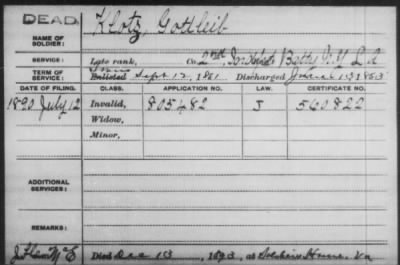 DEAD.
Klotz, Gottleib
NAME OF SOLDIER:
SERVICE: Late rank, Co. 2nd Indpt Batty N.Y. L A
TERM OF SERVICE: Enlisted Sept 12, 1861 Discharged June 13 1863
DATE OF FILING. CLASS. APPLICATION NO. LAW. CERTIFICATE NO.
1890 July 12 Invalid, 805482 J 560822
Widow,
Minor,
ADDITIONAL SERVICES:
REMARKS:
Died Dec 13, 1893, at Soldiers Home, Va